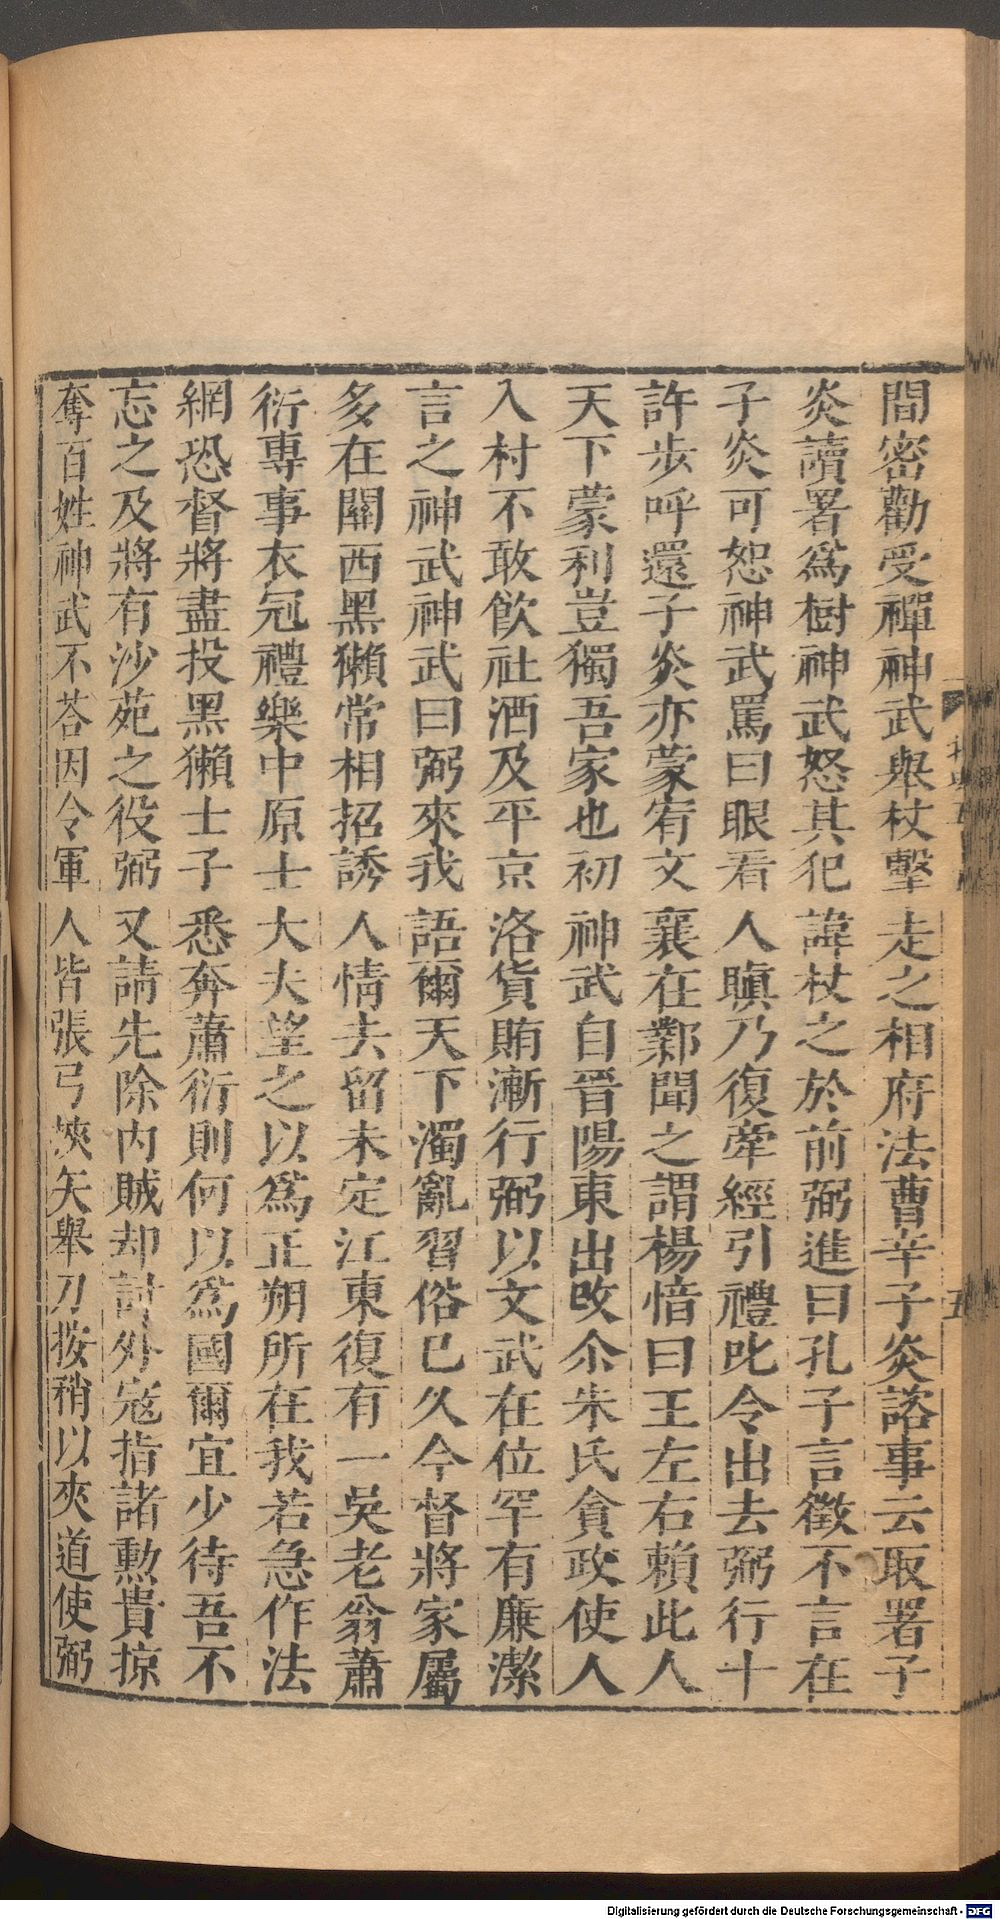 間密勸受禪神武舉杖擊走之相府法曹辛子炎諮事云取署子
炎讀署爲樹神武怒其犯諱杖之於前弼進曰孔子言徵不言在
子炎可恕神武罵曰眼看人瞋乃復牽經引禮叱令出去弼行十
許步呼還子炎亦蒙宥文襄在鄴聞之謂楊愔曰王左右賴此人
天下蒙利豈獨吾家也初神武自晉陽東出改尒朱氏貪政使人
入村不敢飲社酒及平京洛貨賄漸行弼以文武在位罕有廉潔
言之神武神武曰弼來我語爾天下濁亂習俗已久今督將家屬
多在關西黑獺常相招誘人情去留未定江東復有一吳老翁蕭
衍專事衣冠禮樂中原士大夫望之以爲正朔所在我若急作法
網恐督將盡投黑獺士子悉奔蕭衍則何以爲國爾宜少待吾不
忘之及將有沙苑之役弼又請先除內賊却討外寇指諸勳貴掠
奪百姓神武不荅因令軍人皆張弓挾矢舉刀按矟以夾道使弼
五
Digitalisierung gefördert durch die Deutsche Forschungsgemeinschaft - DFG